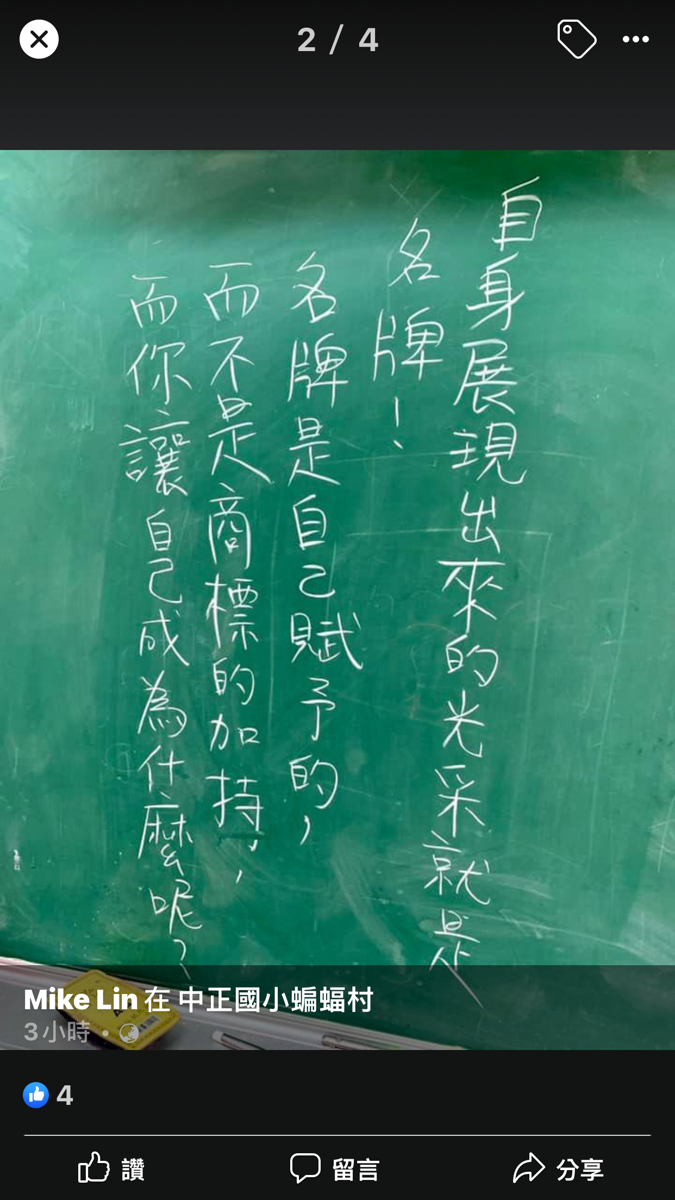 2 / 4
自身展現出來的光采就是
名牌！
名牌是自己賦予的，
而不是商標的加持，
而你讓自己成為什麼呢？
Mike Lin 在 中正國小蝙蝠村
3 小時 ·
4
讚
留言
分享